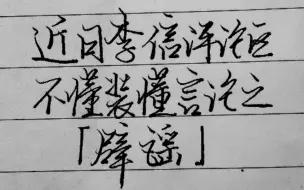 近日李信洋
不懂装懂言论之
「辟谣」